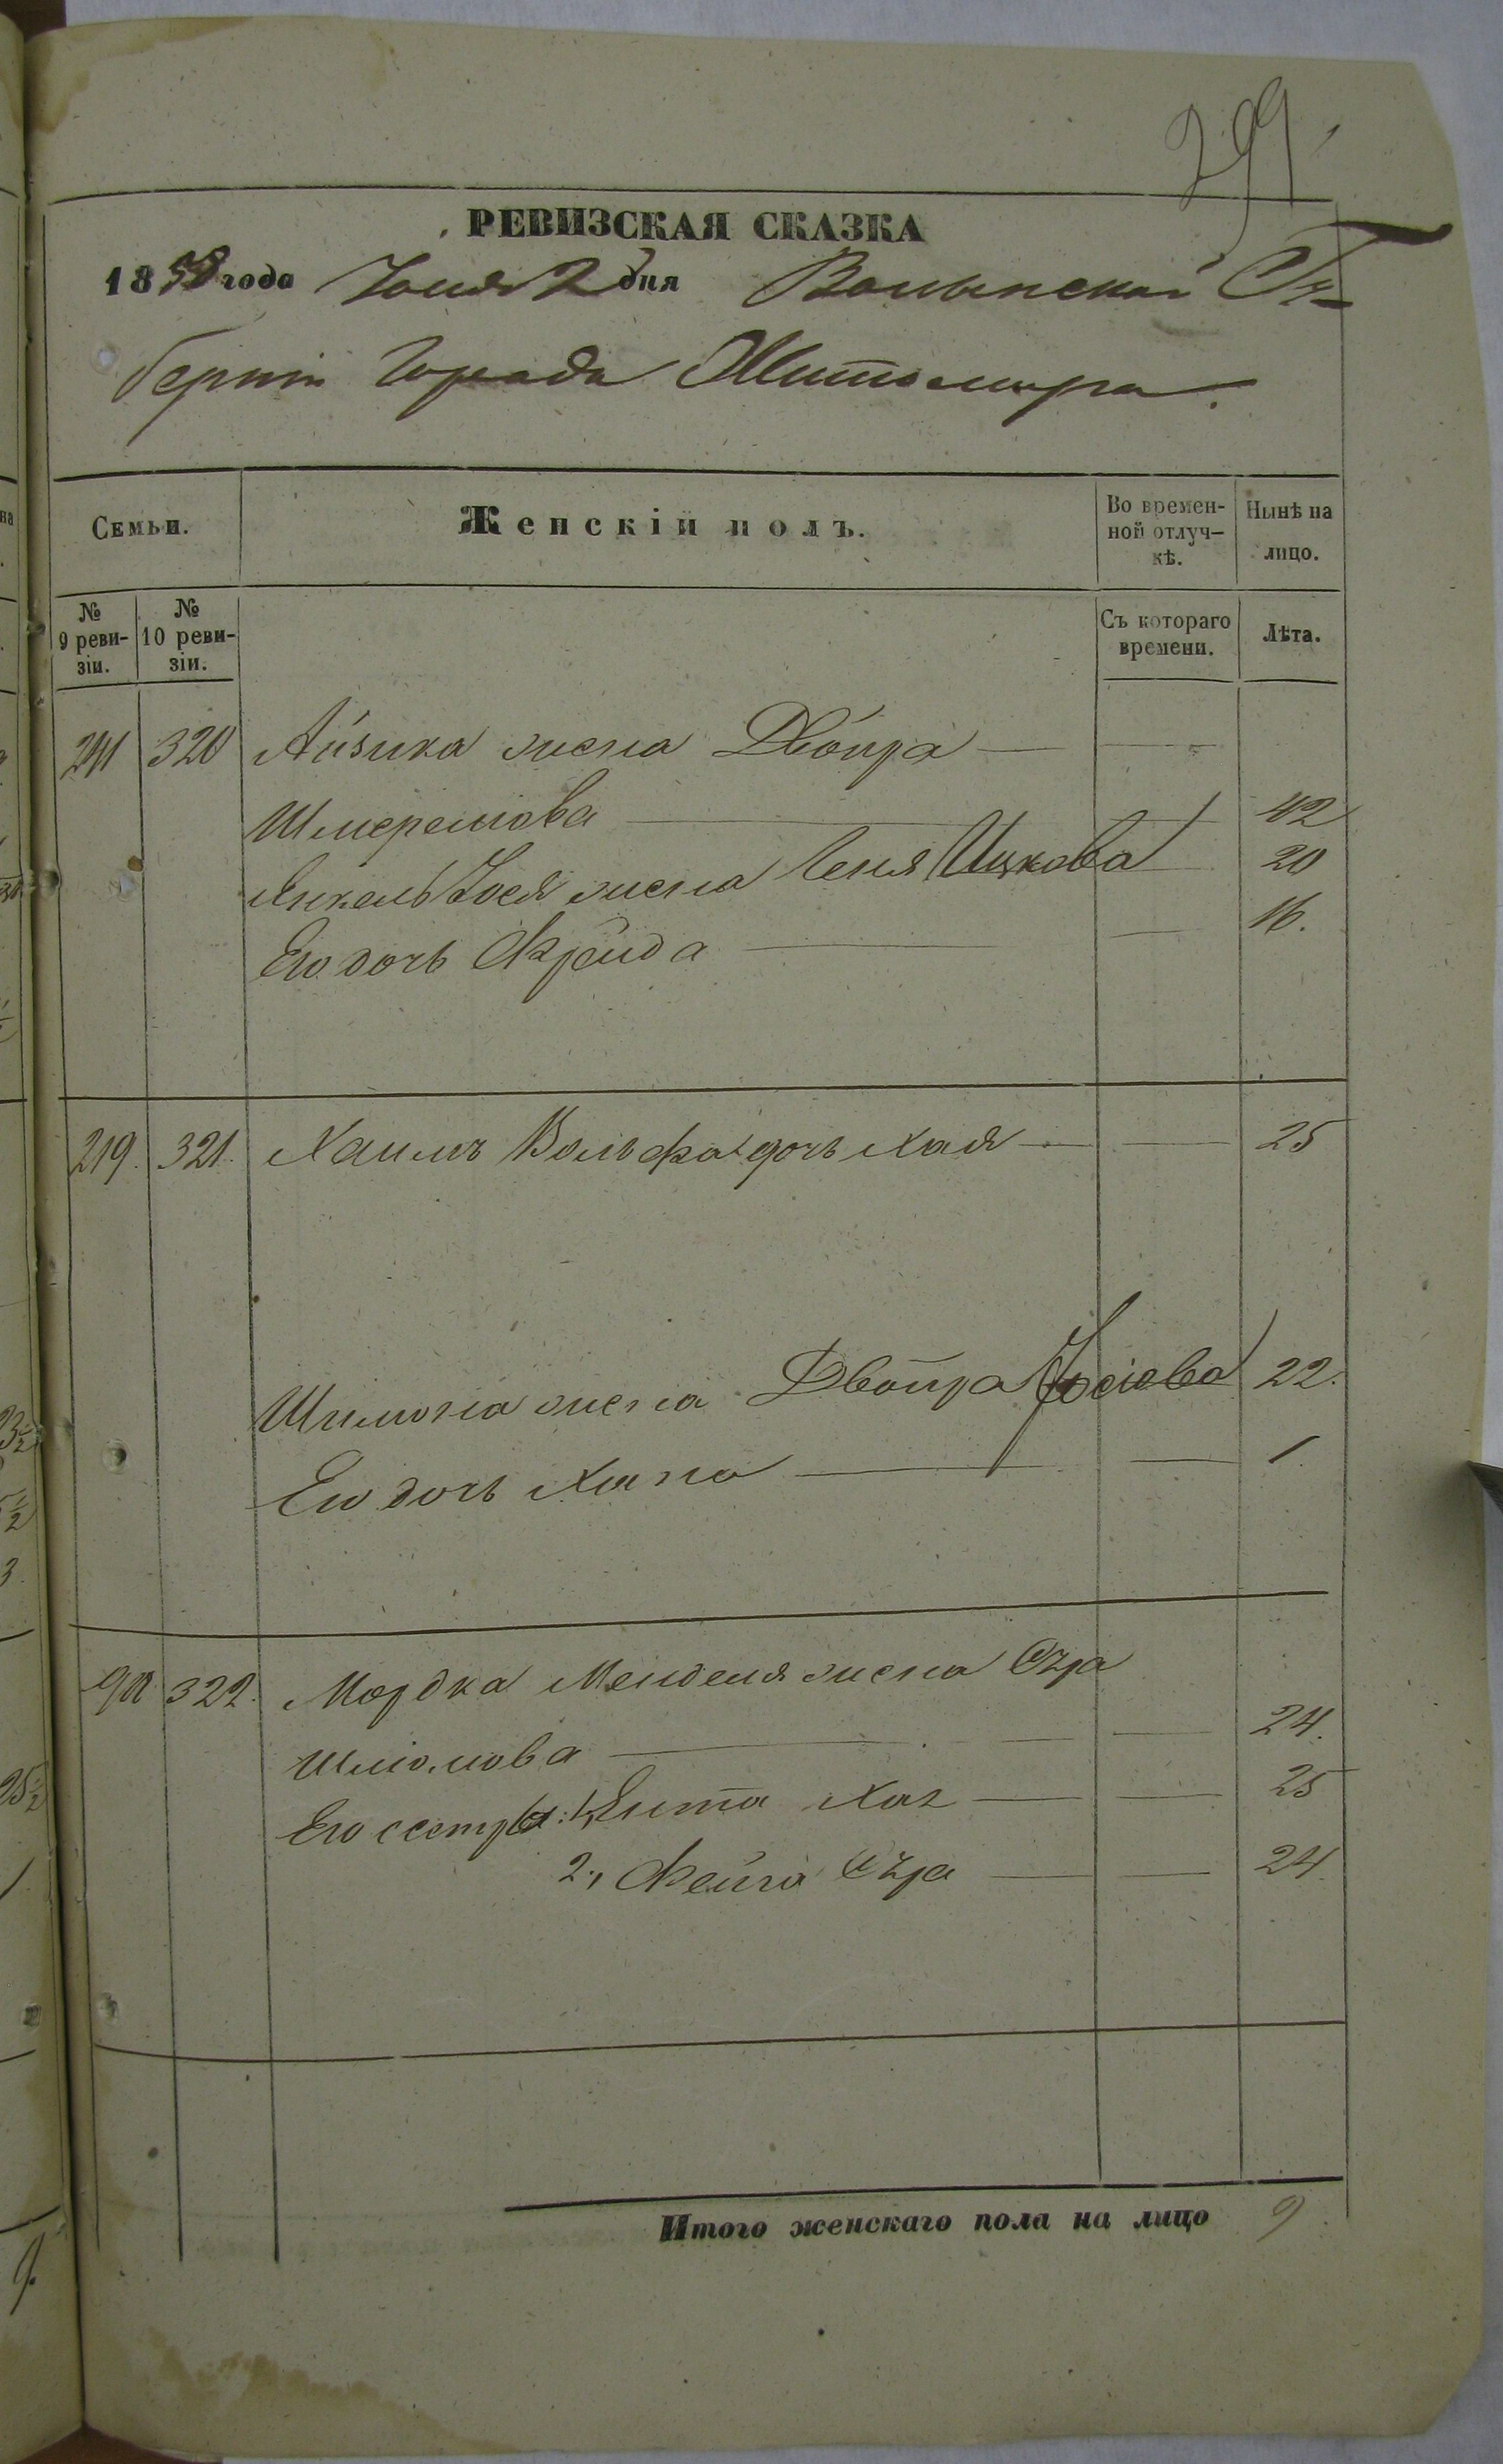 299.
РЕВИЗСКАЯ СКАЗКА
1858 года Іюня 2 дня Волынской Гу-
берніи Города Житомира.
Семьи. Женскій полъ. Во времен-ной отлуч-кѣ. Нынѣ на лицо.
№ 9 реви-зіи. № 10 реви-зіи. Съ котораго времени. Лѣта.
241 320 Айзика жена Двойра
Шмерелiова 42
Янкель Іося жена Леня Ицкова 20
Его дочь Фрейда 16.
219. 321. Хаимъ Вольфа дочь Хая 25
Шимона жена Двойра Іосіова 22.
Его дочь Хана 1.
322. Мордка Менделя жена Сура
Шліомова 24.
Его сестры: 1, Ента Хая 25
2, Фейга Сура 24.
Итого женскаго пола на лицо 9.